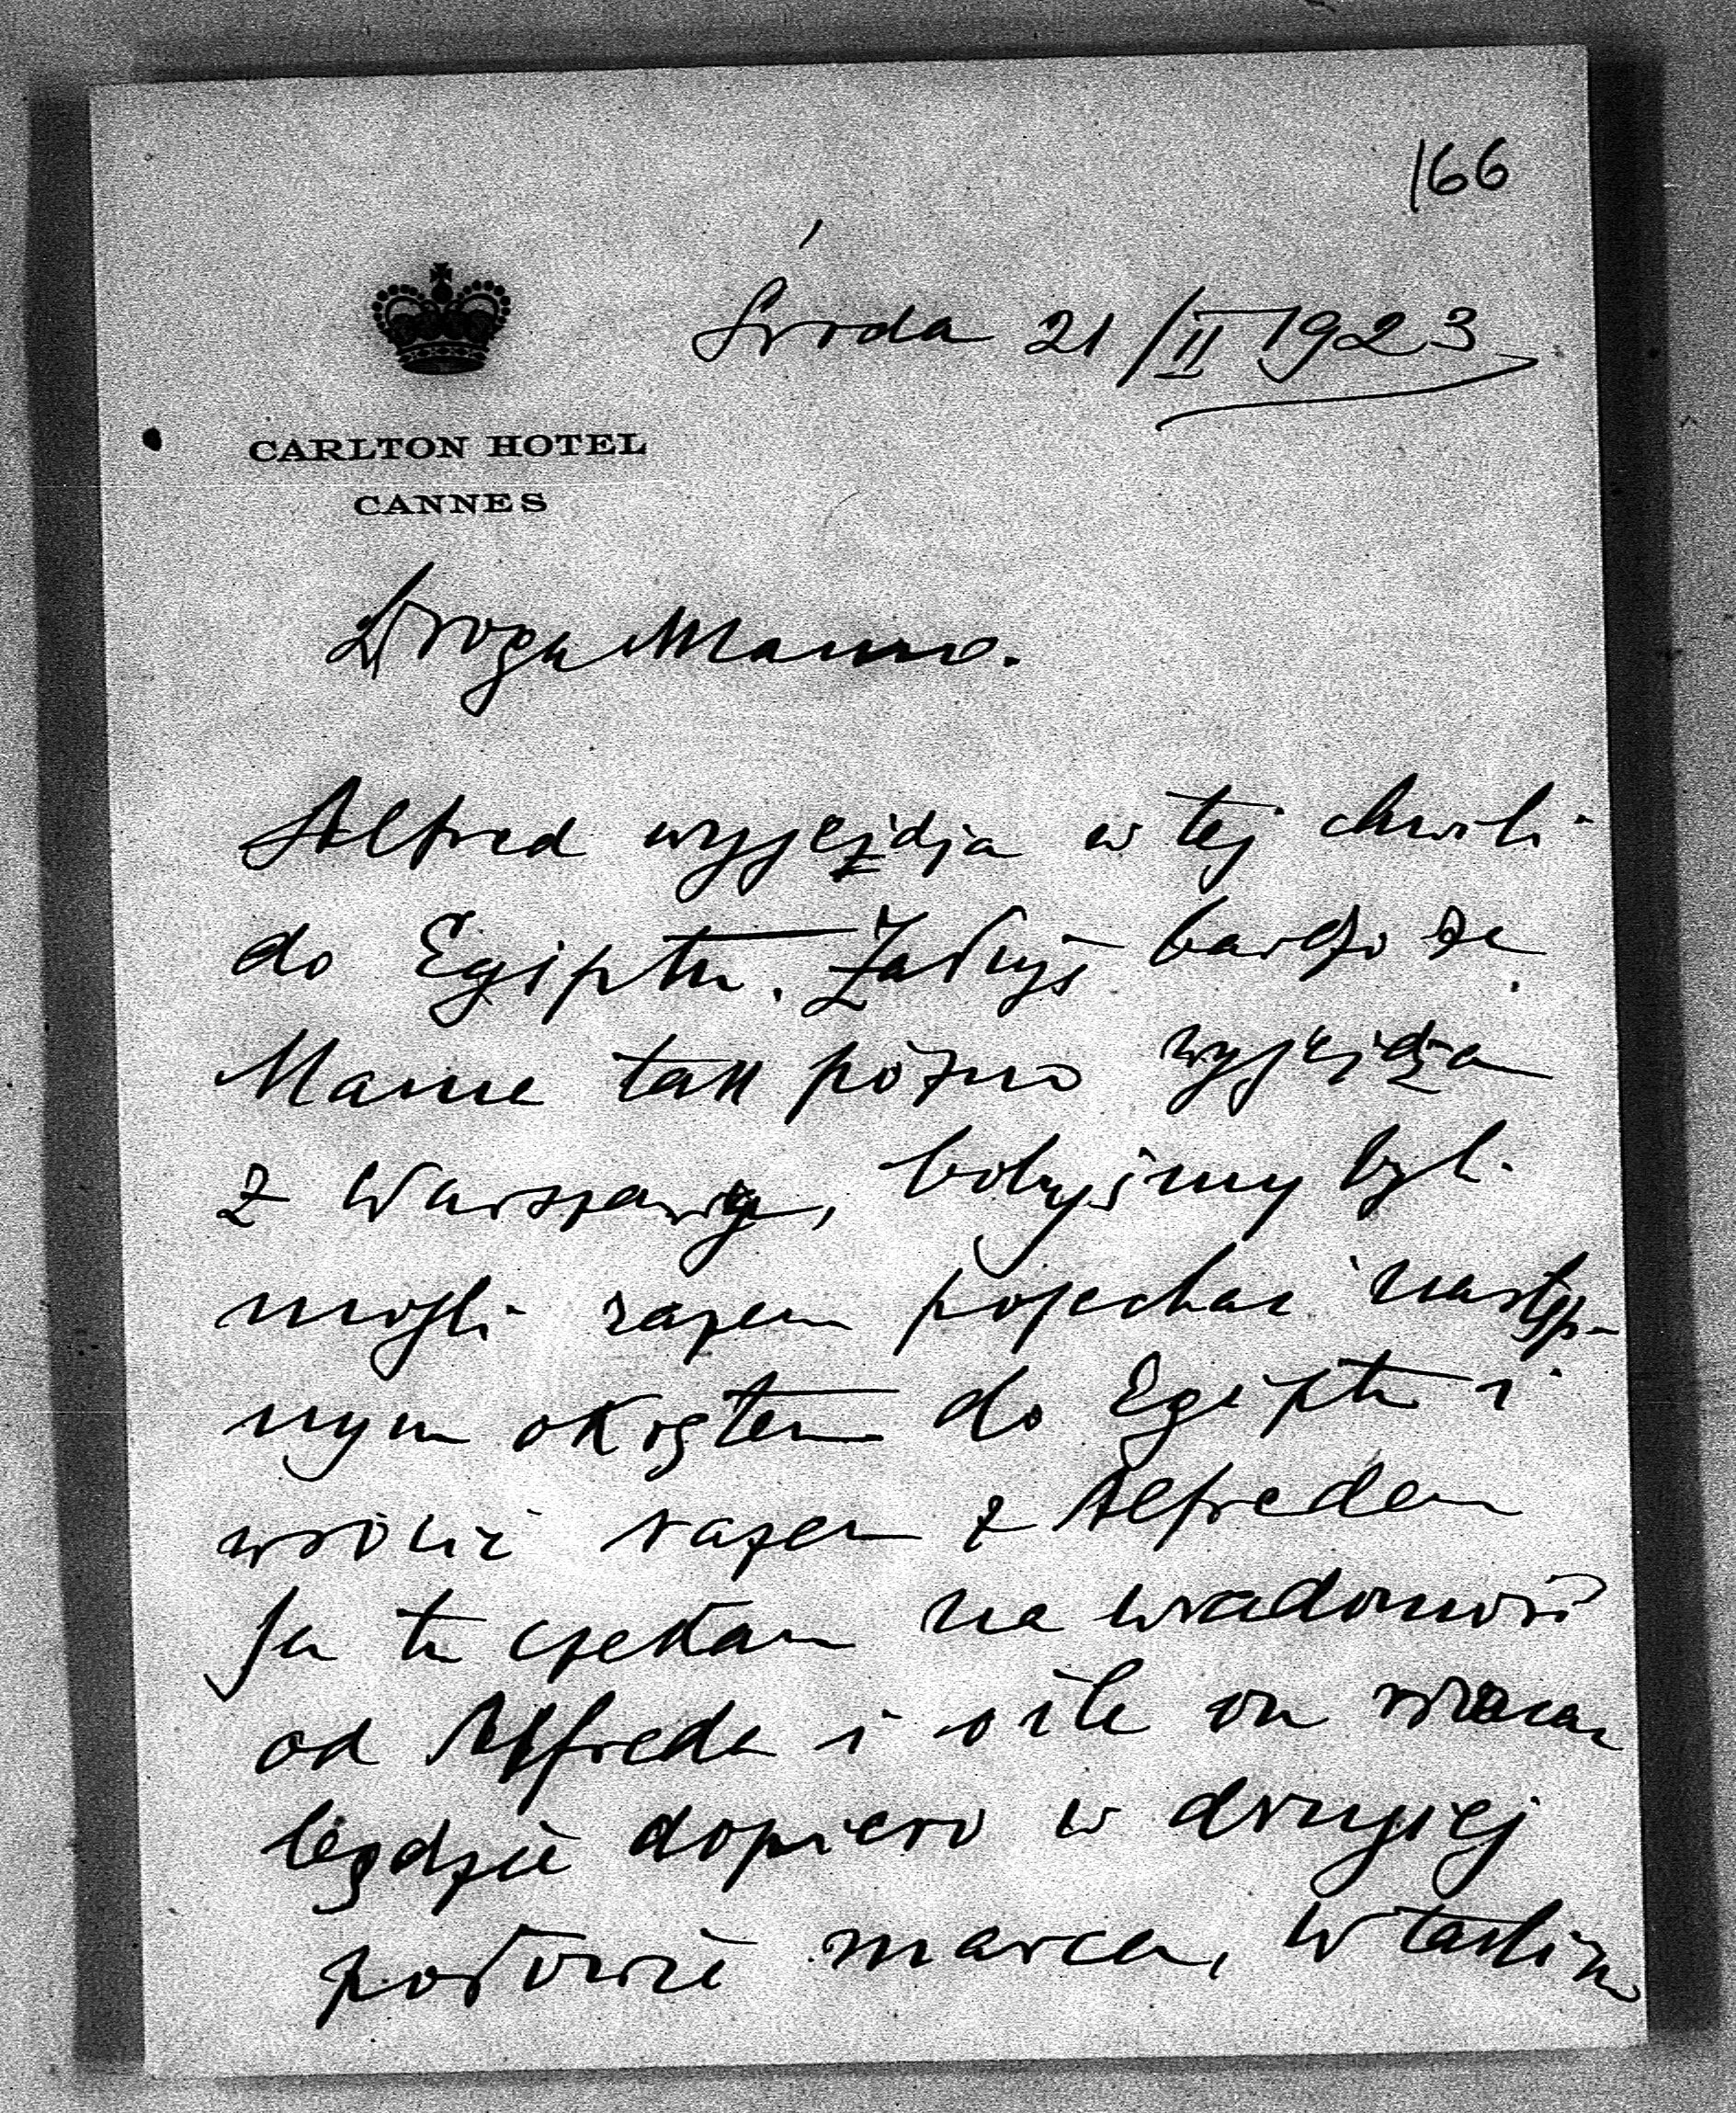 166
Środa 21/II 1923
CARLTON HOTEL
CANNES
Droga Mamo.
Alfred wyjeżdża w tej chwili
do Egiptu. Żałuję bardzo że
Mama tak późno wyjeżdża
z Warszawy, bobyśmy byli
mogli razem pojechać następ-
nym okrętem do Egiptu i
wrócić razem z Alfredem
Ja tu czekam na wiadomość
od Alfreda i o ile on wracać
będzie dopiero w drugiej
połowie marca, w takim